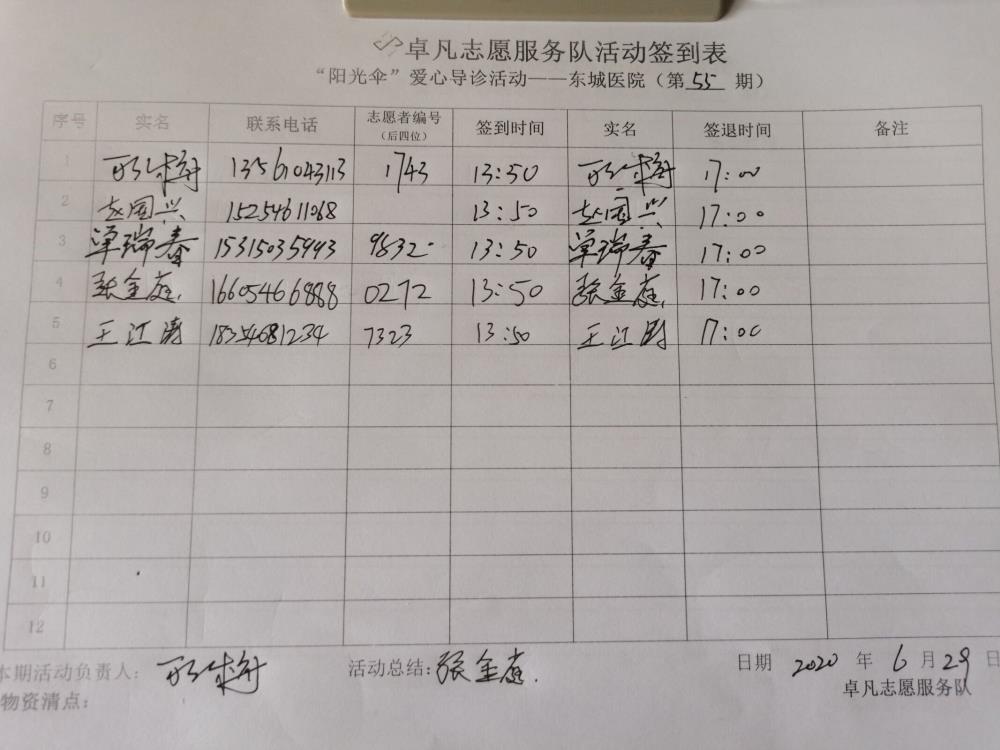 卓凡志愿服务队活动签到表
“阳光伞”爱心导诊活动——东城医院（第 55 期）
序号 实名 联系电话 志愿者编号（后四位） 签到时间 实名 签退时间 备注
1 13561043113 1743 13:50 17:00
2 赵国兴 15254611068 13:50 赵国兴 17:00
3 单瑞春 15315035993 9832 13:50 单瑞春 17:00
4 张金庭 16605466888 0272 13:50 张金庭 17:00
5 王江涛 18354681234 7323 13:50 王江涛 17:00
6
7
8
9
10
11
12
本期活动负责人： 活动总结：张金庭 日期 2020 年 6 月 29 日
物资清点： 卓凡志愿服务队